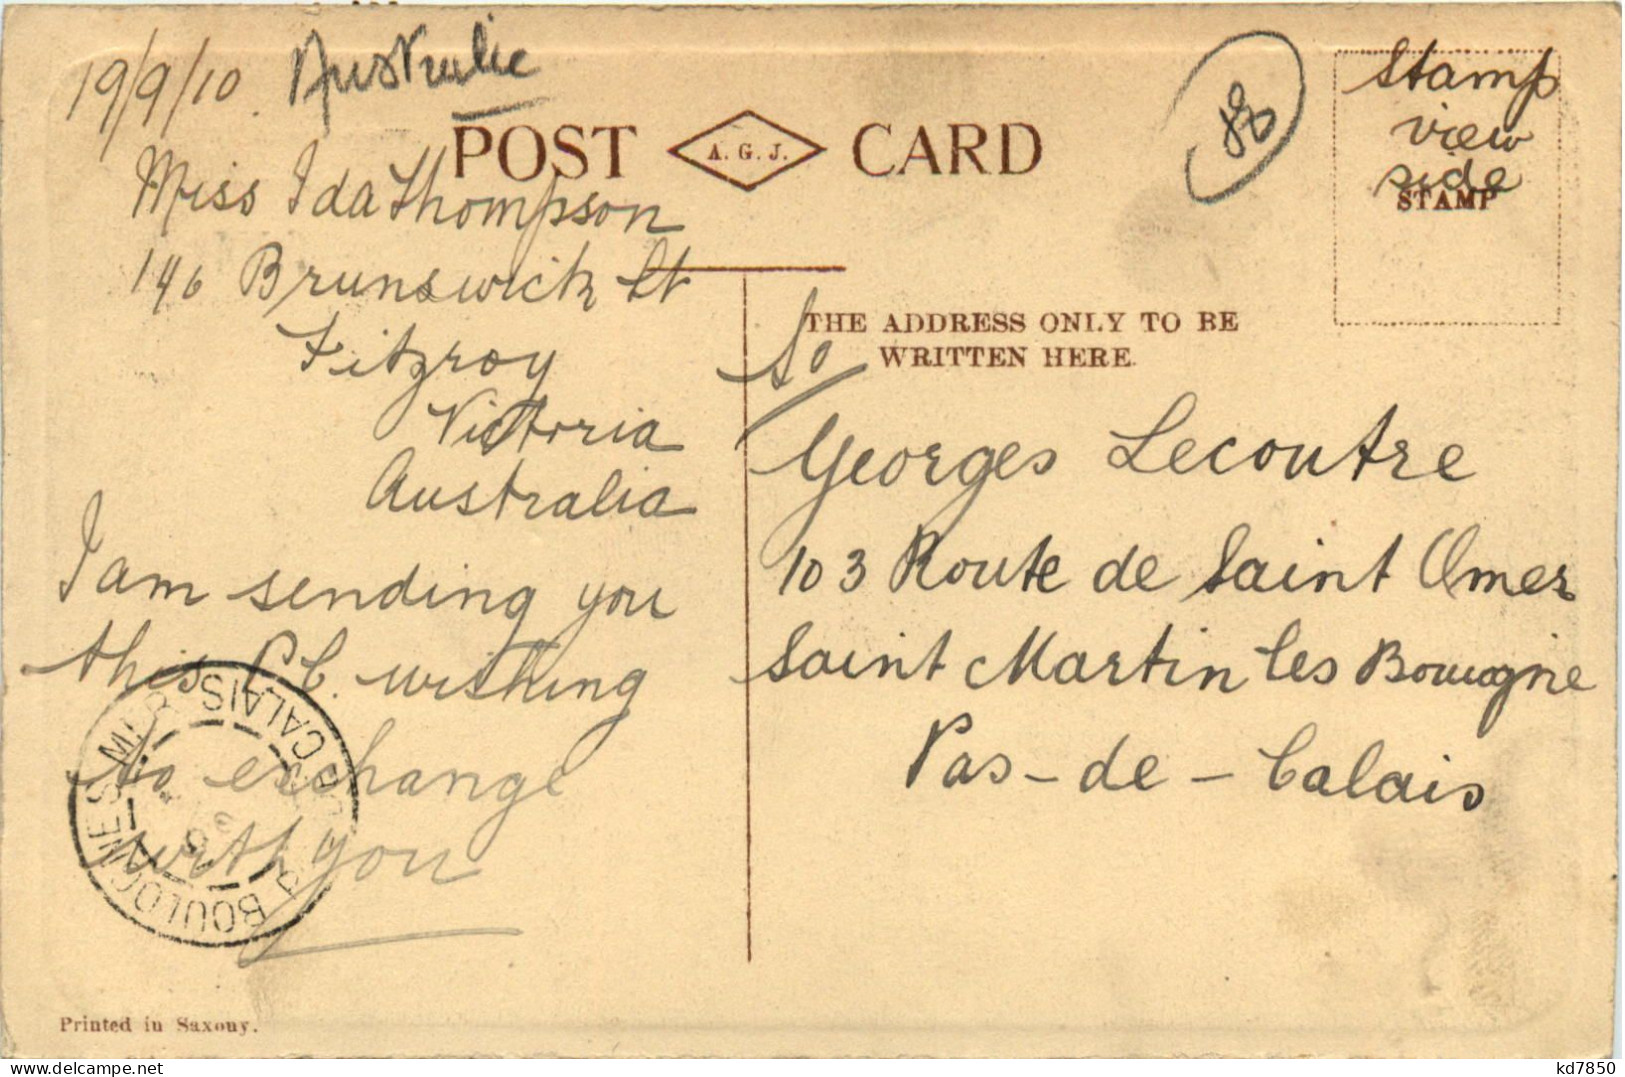 19/9/10 Australie
88
Stamp
view
side
STAMP
POST A. G. J. CARD
Miss Ida Thompson
146 Brunswick St
Fitzroy
Victoria
Australia
I am sending you
this P.C. wishing
to exchange
with you
THE ADDRESS ONLY TO BE
WRITTEN HERE.
To
Georges Lecoutre
103 Route de Saint Omer
Saint Martin les Boulogne
Pas-de-Calais
BOULOGNE S MER
PAS DE CALAIS
Printed in Saxony.
kd7850